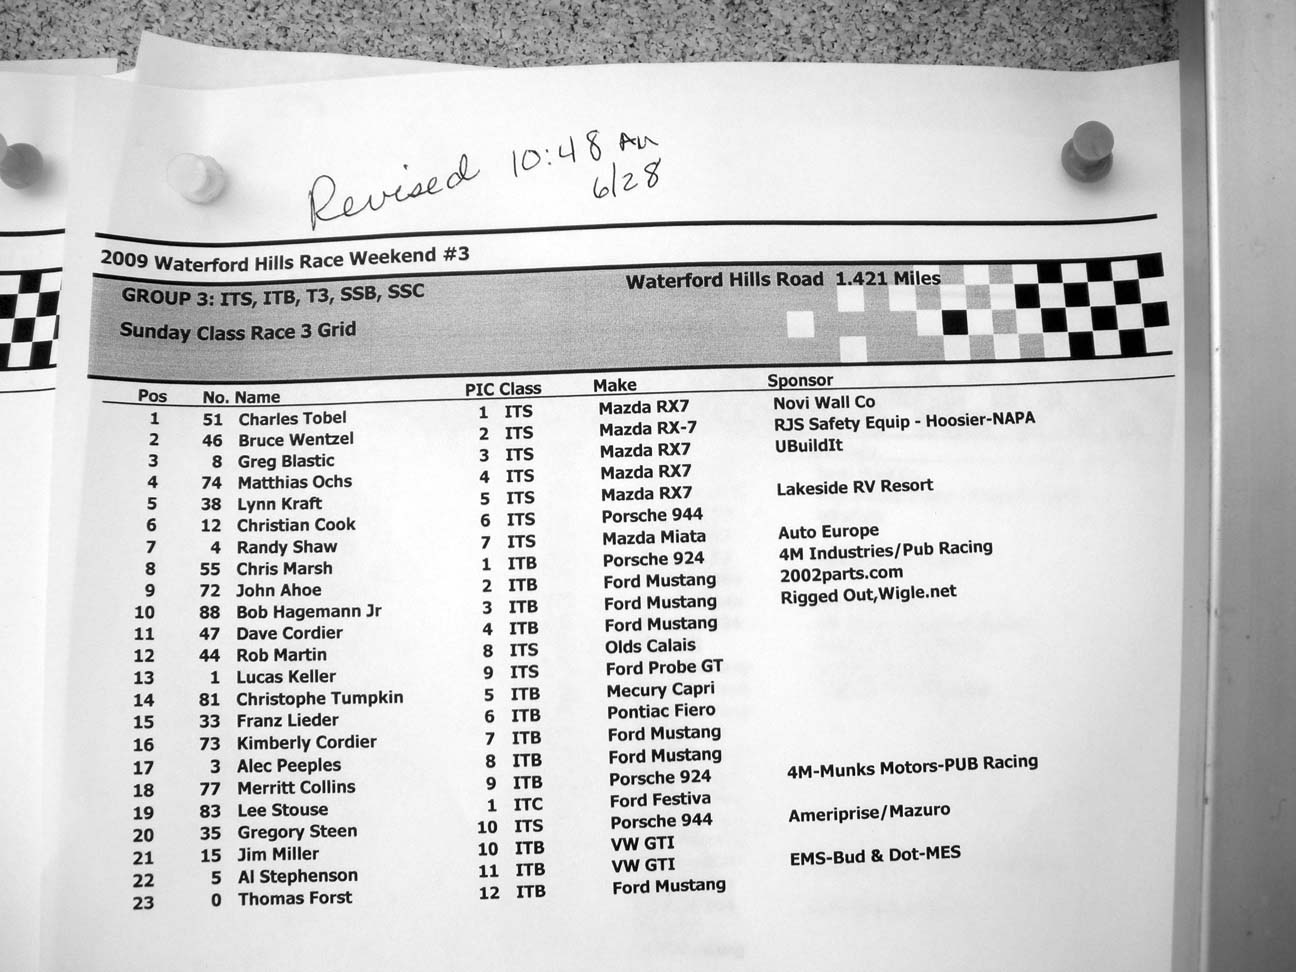 Revised 10:48 AM
6/28
2009 Waterford Hills Race Weekend #3
GROUP 3: ITS, ITB, T3, SSB, SSC Waterford Hills Road 1.421 Miles
Sunday Class Race 3 Grid
Pos No. Name PIC Class Make Sponsor
1 51 Charles Tobel 1 ITS Mazda RX7 Novi Wall Co
2 46 Bruce Wentzel 2 ITS Mazda RX-7 RJS Safety Equip - Hoosier-NAPA
3 8 Greg Blastic 3 ITS Mazda RX7 UBuildIt
4 74 Matthias Ochs 4 ITS Mazda RX7
5 38 Lynn Kraft 5 ITS Mazda RX7 Lakeside RV Resort
6 12 Christian Cook 6 ITS Porsche 944
7 4 Randy Shaw 7 ITS Mazda Miata Auto Europe
8 55 Chris Marsh 1 ITB Porsche 924 4M Industries/Pub Racing
9 72 John Ahoe 2 ITB Ford Mustang 2002parts.com
10 88 Bob Hagemann Jr 3 ITB Ford Mustang Rigged Out,Wigle.net
11 47 Dave Cordier 4 ITB Ford Mustang
12 44 Rob Martin 8 ITS Olds Calais
13 1 Lucas Keller 9 ITS Ford Probe GT
14 81 Christophe Tumpkin 5 ITB Mecury Capri
15 33 Franz Lieder 6 ITB Pontiac Fiero
16 73 Kimberly Cordier 7 ITB Ford Mustang
17 3 Alec Peeples 8 ITB Ford Mustang
18 77 Merritt Collins 9 ITB Porsche 924 4M-Munks Motors-PUB Racing
19 83 Lee Stouse 1 ITC Ford Festiva
20 35 Gregory Steen 10 ITS Porsche 944 Ameriprise/Mazuro
21 15 Jim Miller 10 ITB VW GTI
22 5 Al Stephenson 11 ITB VW GTI EMS-Bud & Dot-MES
23 0 Thomas Forst 12 ITB Ford Mustang